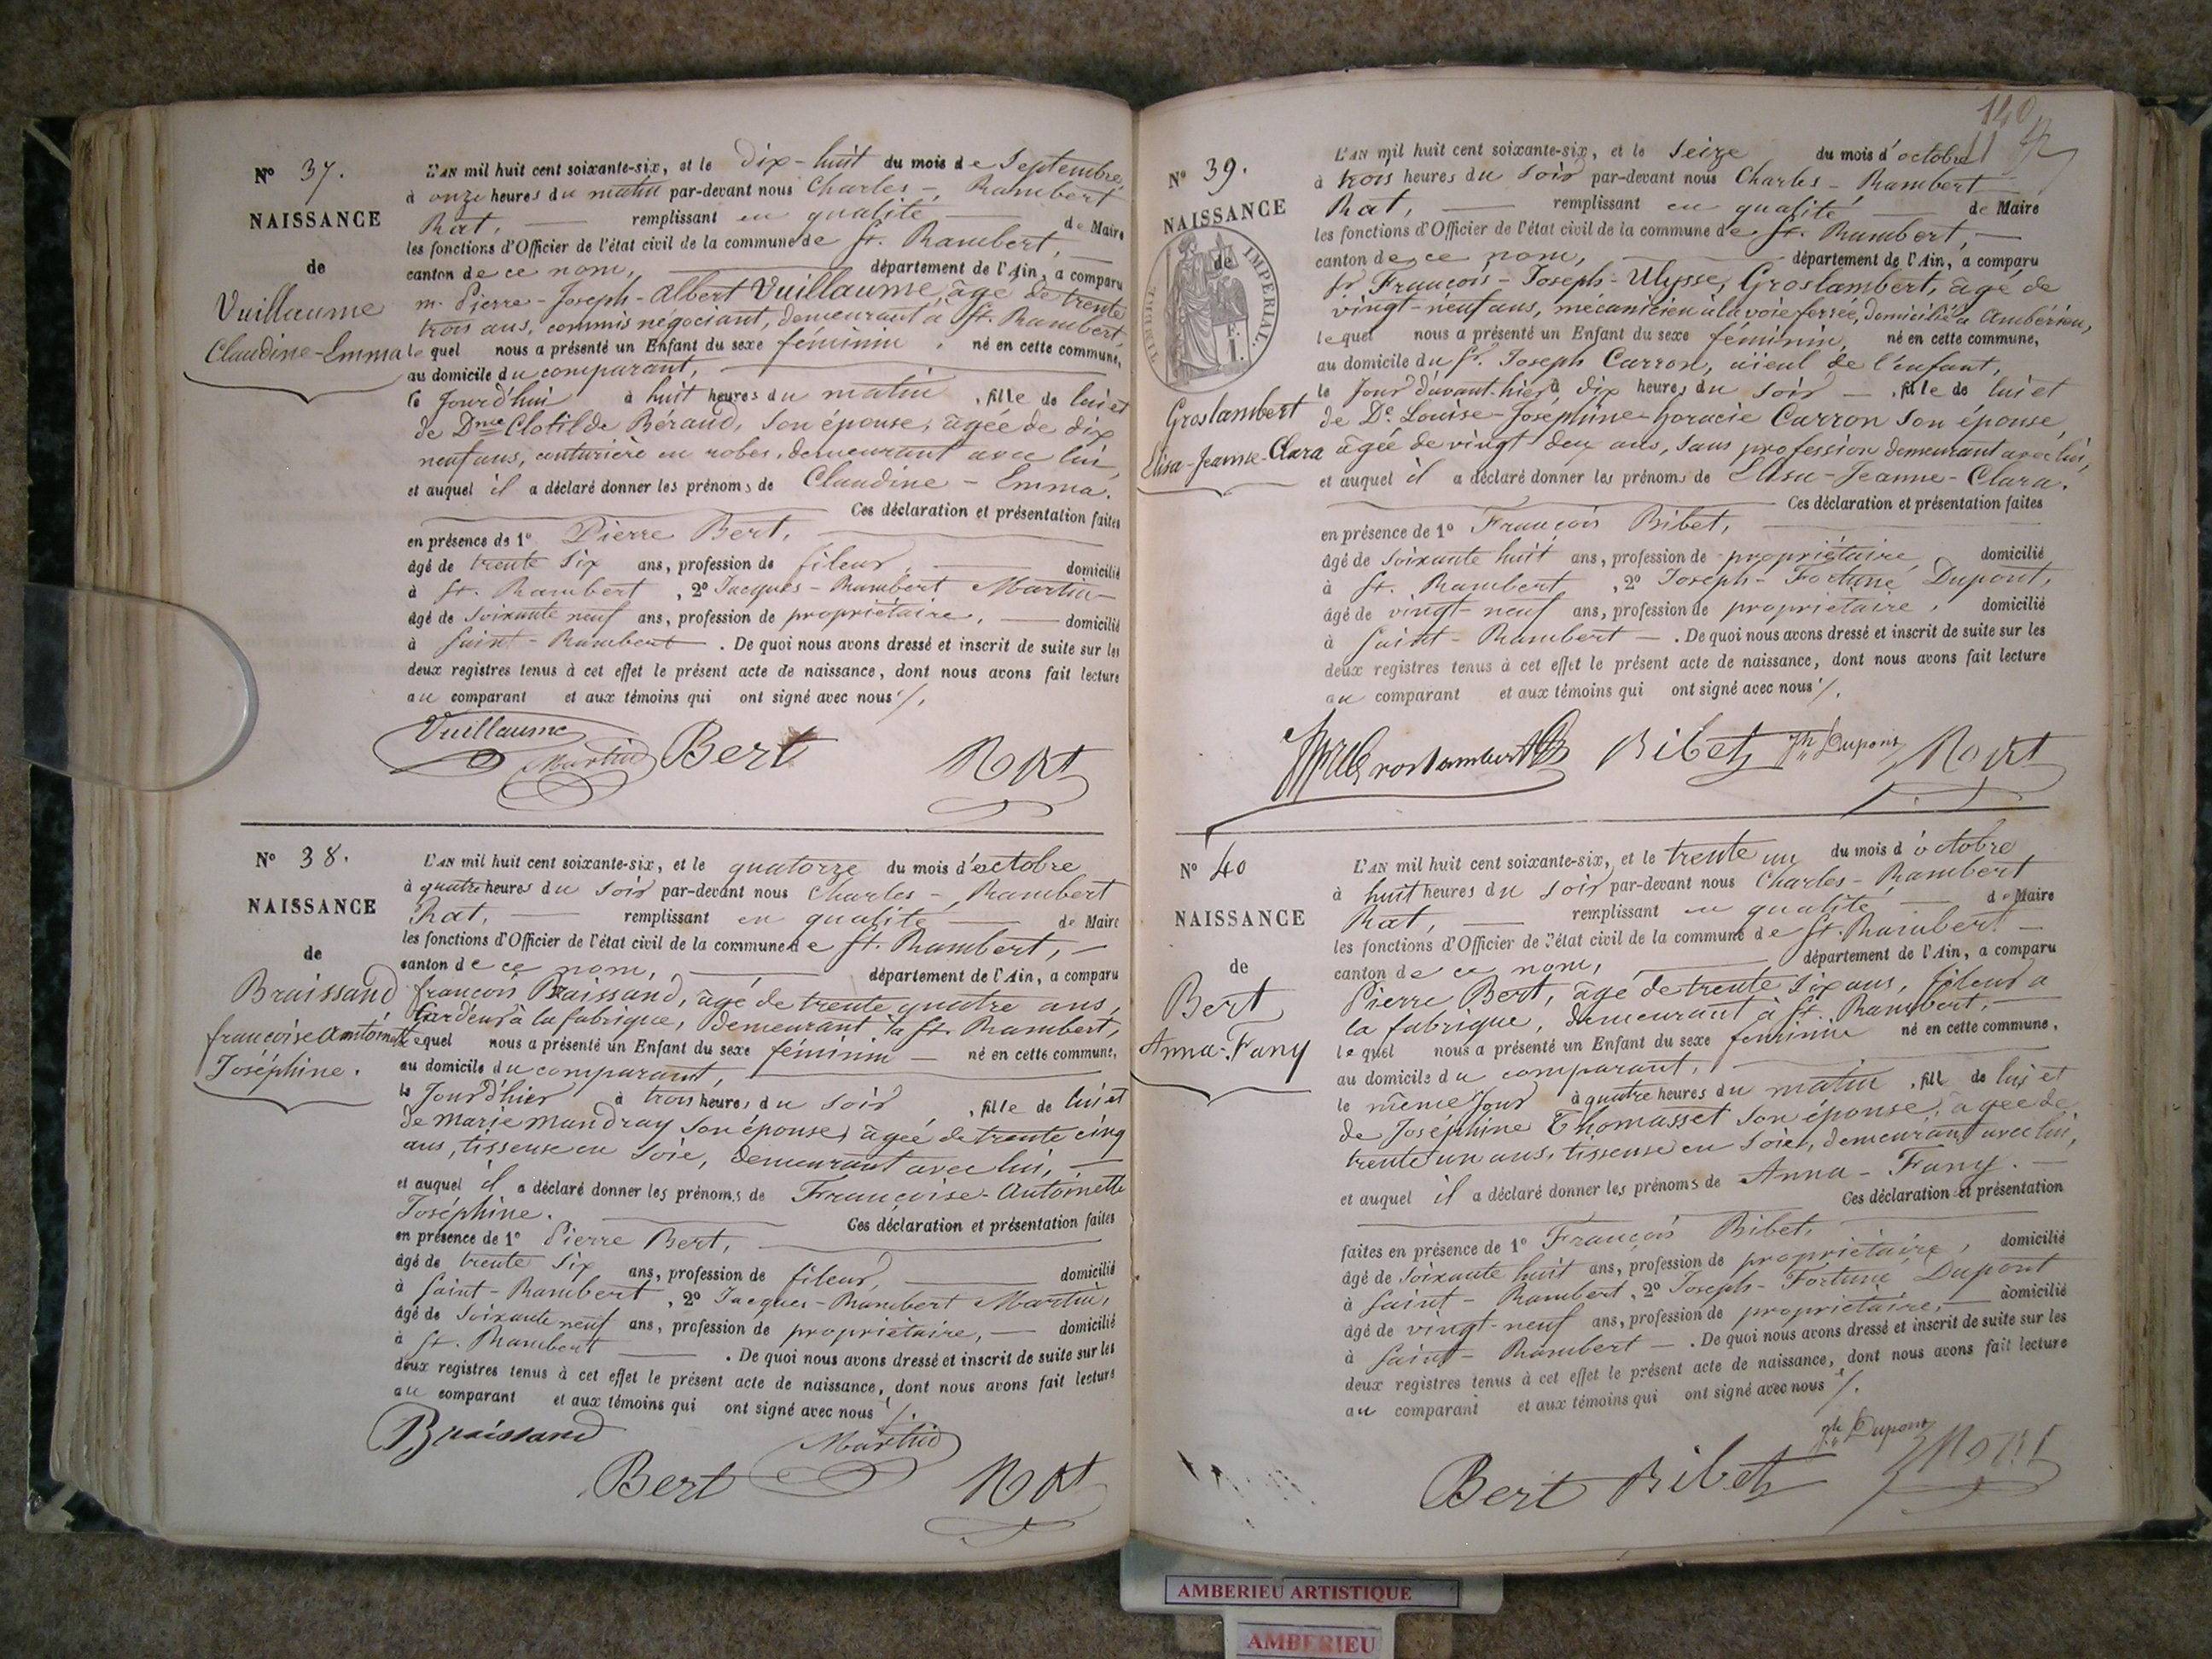 N° 37.
NAISSANCE
de
Vuillaume
Claudine-Emma
L'AN mil huit cent soixante-six, et le dix-huit du mois de Septembre,
à onze heures du matin par-devant nous Charles-Rambert
Rat, remplissant en qualité de Maire
les fonctions d'Officier de l'état civil de la commune de St. Rambert,
canton de ce nom, département de l'Ain, a comparu
m. Pierre-Joseph-Albert Vuillaume, âgé de trente
trois ans, commis négociant, demeurant à St. Rambert,
lequel nous a présenté un Enfant du sexe féminin, né en cette commune,
au domicile du comparant,
le Jourd'hui à huit heures du matin, fille de lui et
de Dme Clotilde Béraud, son épouse, âgée de dix
neuf ans, couturière en robes, demeurant avec lui,
et auquel il a déclaré donner les prénoms de Claudine-Emma.
Ces déclaration et présentation faites
en présence de 1° Pierre Bert,
âgé de trente six ans, profession de fileur, domicilié
à St. Rambert, 2° Jacques-Rambert Martin
âgé de soixante neuf ans, profession de propriétaire, domicilié
à Saint-Rambert. De quoi nous avons dressé et inscrit de suite sur les
deux registres tenus à cet effet le présent acte de naissance, dont nous avons fait lecture
au comparant et aux témoins qui ont signé avec nous ./.
Vuillaume Martin Bert Rat
N° 38.
NAISSANCE
de
Braissand
françoise antoinette
Joséphine.
L'AN mil huit cent soixante-six, et le quatorze du mois d'octobre
à quatre heures du soir par-devant nous Charles-Rambert
Rat, remplissant en qualité de Maire
les fonctions d'Officier de l'état civil de la commune de St. Rambert,
canton de ce nom, département de l'Ain, a comparu
françois Braissand, âgé de trente quatre ans,
Cardeur à la fabrique, demeurant à St. Rambert,
lequel nous a présenté un Enfant du sexe féminin né en cette commune,
au domicile du comparant,
le Jourd'hier à trois heures du soir, fille de lui et
de marie mandray son épouse, âgée de trente cinq
ans, tisseuse en soie, demeurant avec lui,
et auquel il a déclaré donner les prénoms de Françoise-Antoinette
Joséphine.
Ces déclaration et présentation faites
en présence de 1° Pierre Bert,
âgé de trente six ans, profession de fileur, domicilié
à Saint-Rambert, 2° Jacques-Rambert Martin,
âgé de soixante neuf ans, profession de propriétaire, domicilié
à St. Rambert. De quoi nous avons dressé et inscrit de suite sur les
deux registres tenus à cet effet le présent acte de naissance, dont nous avons fait lecture
au comparant et aux témoins qui ont signé avec nous ./.
Braissand Martin
Bert Rat
140
N° 39.
NAISSANCE
de
TIMBRE IMPERIAL.
Groslambert
Elisa-Jeanne-Clara
L'AN mil huit cent soixante-six, et le seize du mois d'octobre
à trois heures du soir par-devant nous Charles-Rambert
Rat, remplissant en qualité de Maire
les fonctions d'Officier de l'état civil de la commune de St. Rambert,
canton de ce nom, département de l'Ain, a comparu
Sr François-Joseph-Ulysse, Groslambert, âgé de
vingt-neuf ans, mécanicien à la voie ferrée, domicilié à Ambérieu,
lequel nous a présenté un Enfant du sexe féminin, né en cette commune,
au domicile du Sr. Joseph Carron, aïeul de l'enfant,
le Jour d'avant-hier à dix heures du soir, fille de lui et
de De. Louise-Joséphine-horacie Carron son épouse,
âgée de vingt deux ans, sans profession demeurant avec lui,
et auquel il a déclaré donner les prénoms de Elisa-Jeanne-Clara.
Ces déclaration et présentation faites
en présence de 1° François Bibet,
âgé de soixante huit ans, profession de propriétaire, domicilié
à St. Rambert, 2° Joseph-Fortuné Dupont,
âgé de vingt-neuf ans, profession de propriétaire, domicilié
à Saint-Rambert. De quoi nous avons dressé et inscrit de suite sur les
deux registres tenus à cet effet le présent acte de naissance, dont nous avons fait lecture
au comparant et aux témoins qui ont signé avec nous ./.
Groslambert Bibet Jh Dupont Rat
N° 40
NAISSANCE
de
Bert
Anna-Fany
L'AN mil huit cent soixante-six, et le trente un du mois d'octobre
à huit heures du soir par-devant nous Charles-Rambert
Rat, remplissant en qualité de Maire
les fonctions d'Officier de l'état civil de la commune de St. Rambert
canton de ce nom, département de l'Ain, a comparu
Pierre Bert, âgé de trente six ans, fileur a
la fabrique, demeurant à St. Rambert,
lequel nous a présenté un Enfant du sexe féminin né en cette commune,
au domicile du comparant,
le même Jour à quatre heures du matin, fille de lui et
de Joséphine Thomasset son épouse, âgée de
trente un ans, tisseuse en soie, demeurant avec lui,
et auquel il a déclaré donner les prénoms de Anna-Fany.
Ces déclaration et présentation
faites en présence de 1° François Bibet,
âgé de soixante huit ans, profession de propriétaire, domicilié
à Saint-Rambert, 2° Joseph-Fortuné Dupont
âgé de vingt-neuf ans, profession de propriétaire, domicilié
à Saint-Rambert. De quoi nous avons dressé et inscrit de suite sur les
deux registres tenus à cet effet le présent acte de naissance, dont nous avons fait lecture
au comparant et aux témoins qui ont signé avec nous ./.
Jh Dupont
Bert Bibet Rat
AMBERIEU ARTISTIQUE
AMBERIEU